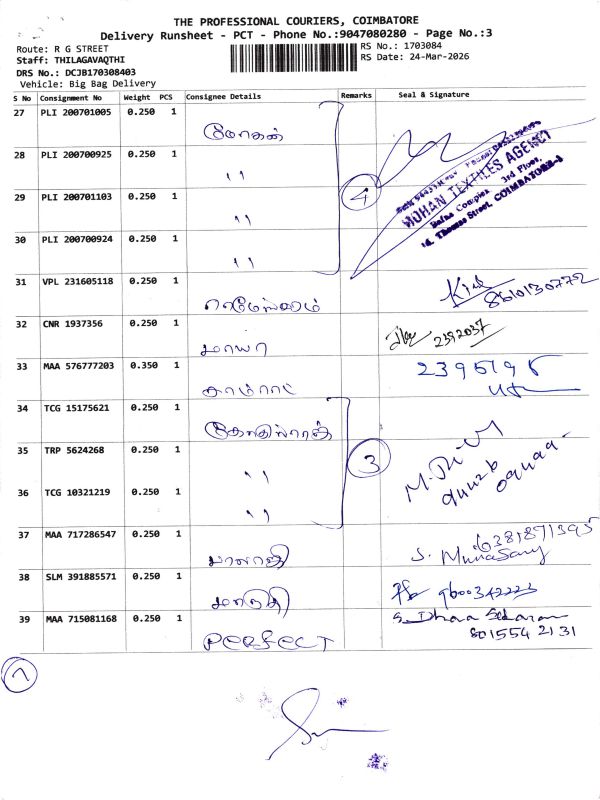 THE PROFESSIONAL COURIERS, COIMBATORE
Delivery Runsheet - PCT - Phone No.:9047080280 - Page No.:3
Route: R G STREET
RS No.: 1703084
Staff: THILAGAVAQTHI
RS Date: 24-Mar-2026
DRS No.: DCJB170308403
Vehicle: Big Bag Delivery
S No Consignment No Weight PCS Consignee Details Remarks Seal & Signature
27 PLI 200701005 0.250 1 மோகன்
28 PLI 200700925 0.250 1 ''
29 PLI 200701103 0.250 1 ''
30 PLI 200700924 0.250 1 ''
4
MOHAN TEXTILES AGENCY
Complex 3rd Floor,
Thomas Street, COIMBATORE-1
31 VPL 231605118 0.250 1 8610130772
32 CNR 1937356 0.250 1 மாயா 2392037
33 MAA 576777203 0.350 1 2395195
34 TCG 15175621 0.250 1
35 TRP 5624268 0.250 1 ''
36 TCG 10321219 0.250 1 ''
3
37 MAA 717286547 0.250 1 பாலாஜி 6381871395
S. Munasamy
38 SLM 391885571 0.250 1 மாருதி 9600342223
39 MAA 715081168 0.250 1 PERFECT
801554 2131
7